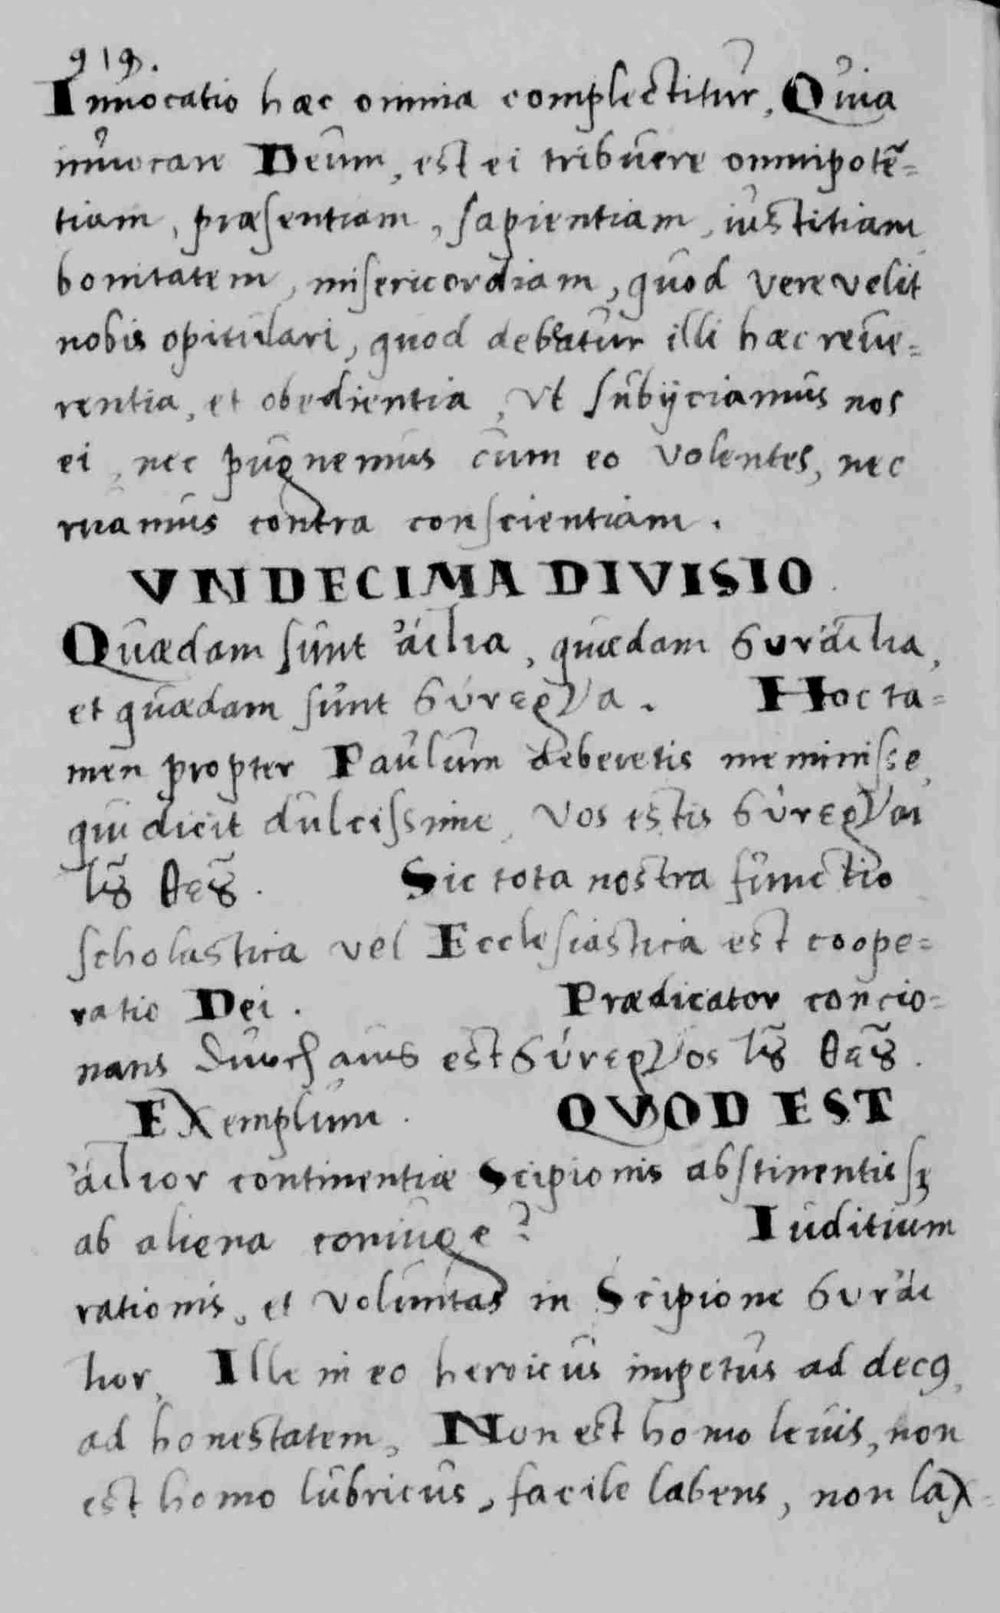 919.
Inuocatio hæc omnia complectitur, Quia
inuocare Deum, est ei tribuere omnipotē=
tiam, præsentiam, sapientiam, iustitiam
bonitatem, misericordiam, quod vere velit
nobis opitulari, quod debeatur illi hæc reue=
rentia, et obedientia, Vt subijciamus nos
ei, nec pugnemus cum eo volentes, nec
ruamus contra conscientiam.
VNDECIMA DIVISIO
Quædam sunt αἴτια, quædam συναίτια,
et quædam sunt σύνεργα. Hoc ta=
men propter Paulum deberetis meminisse
qui dicit dulcissime, Vos estis σύνεργοι
τῦ θεῦ. Sic tota nostra functio
scholastica vel Ecclesiastica est coope=
ratio Dei. Prædicator concio=
nans est σύνεργος τῦ θεῦ.
Exemplum. QVOD EST
αἴτιον continentiæ Scipionis abstinentis
ab aliena coniuge? Iuditium
rationis, et voluntas in Scipione συναί
τιον, Ille in eo heroicus impetus ad decꝰ,
ad honestatem, Non est homo leuis, non
est homo lubricus, facile labens, non lax=